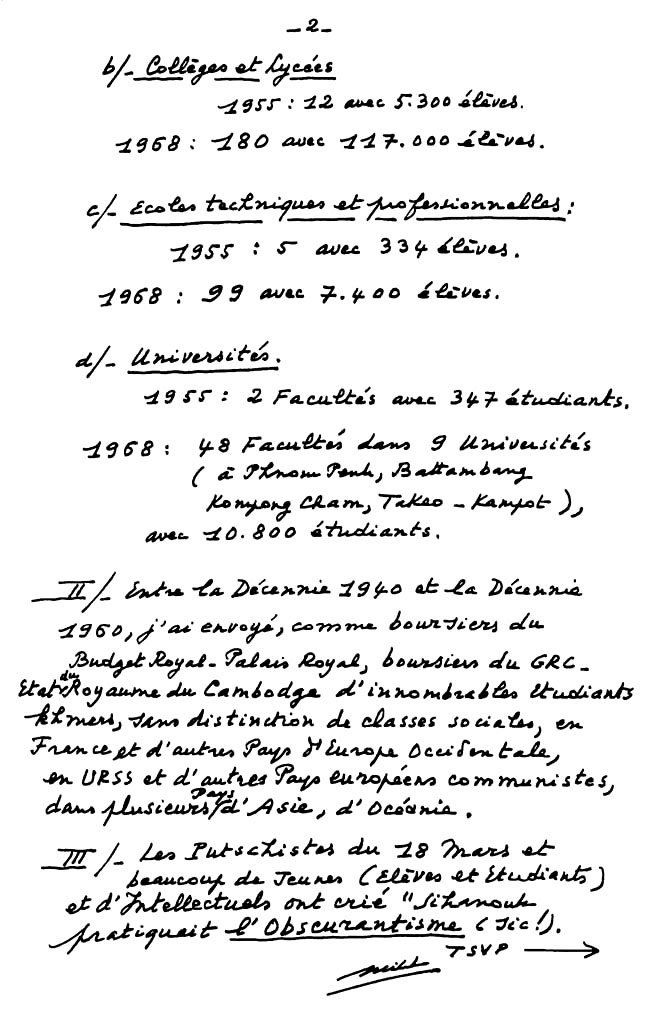 - 2 -
b/- Collèges et Lycées
1955 : 12 avec 5.300 élèves.
1968 : 180 avec 117.000 élèves.
c/- Ecoles techniques et professionnelles :
1955 : 5 avec 334 élèves.
1968 : 99 avec 7.400 élèves.
d/- Universités.
1955 : 2 Facultés avec 347 étudiants.
1968 : 48 Facultés dans 9 Universités
( à Phnom Penh, Battambang
Kompong Cham, Takeo - Kampot ),
avec 10.800 étudiants.
II/- Entre la Décennie 1940 et la Décennie
1960, j'ai envoyé, comme boursiers du
Budget Royal - Palais Royal, boursiers du GRC -
Etat du Royaume du Cambodge d'innombrables Etudiants
khmers, sans distinction de classes sociales, en
France et d'autres Pays d'Europe Occidentale,
en URSS et d'autres Pays européens communistes,
dans plusieurs Pays d'Asie, d'Océanie.
III/- Les Putschistes du 18 Mars et
beaucoup de Jeunes (Elèves et Etudiants)
et d'Intellectuels ont crié "Sihanouk
pratiquait l'Obscurantisme (sic !).
TSVP →